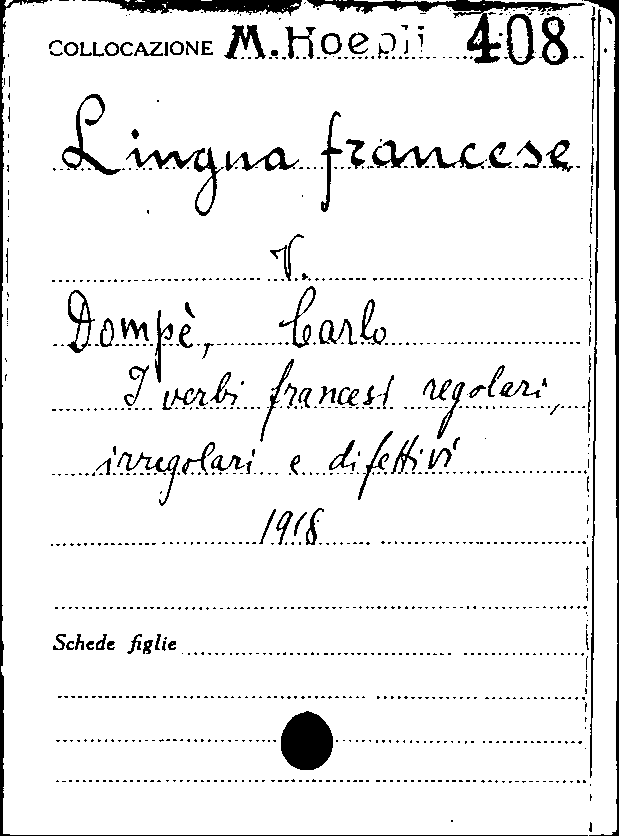 COLLOCAZIONE M. Hoepli 408
Lingua francese
V.
Dompè, Carlo
I verbi francesi regolari,
irregolari e difettivi
1918
Schede figlie